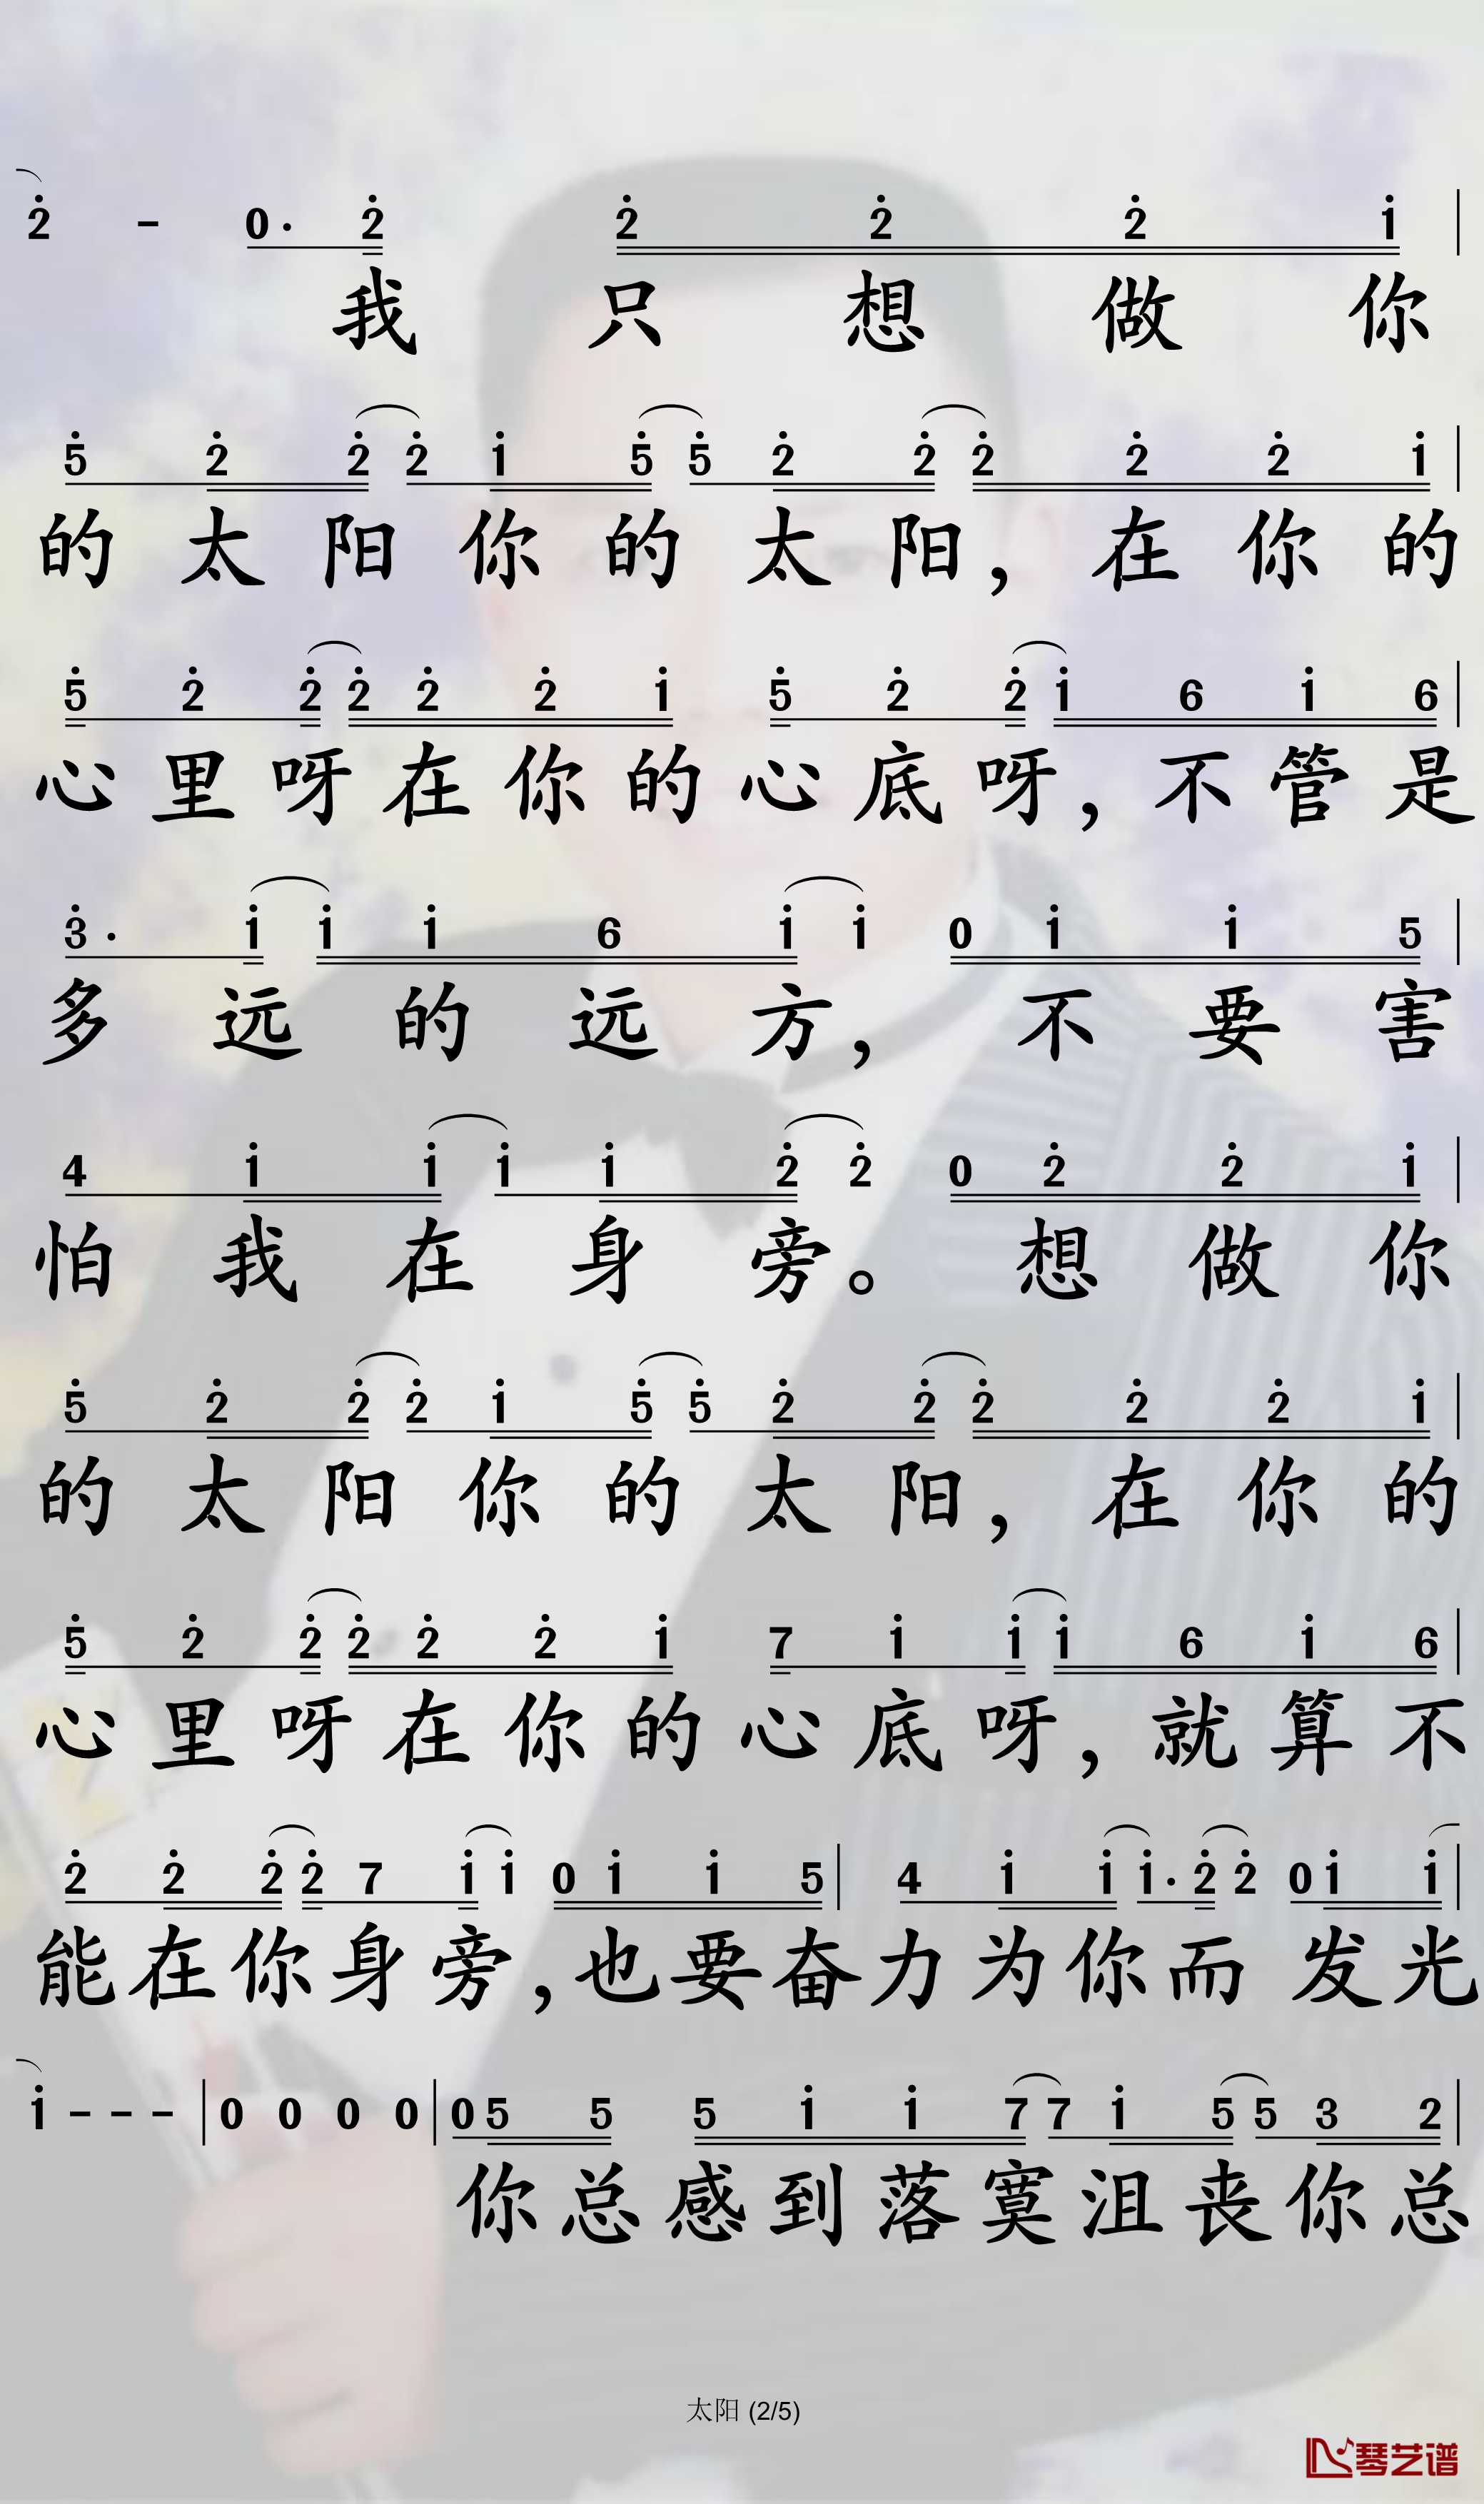 2̇ - 0· 2̇ 2̇ 2̇ 2̇ 1̇ |
我只想做你
5̇ 2̇ 2̇ 2̇ 1̇ 5̇ 5̇ 2̇ 2̇ 2̇ 2̇ 2̇ 1̇ |
的太阳你的太阳，在你的
5̇ 2̇ 2̇ 2̇ 2̇ 2̇ 1̇ 5̇ 2̇ 2̇ 1̇ 6 1̇ 6 |
心里呀在你的心底呀，不管是
3̇· 1̇ 1̇ 1̇ 6 1̇ 1̇ 0 1̇ 1̇ 5 |
多远的远方，不要害
4 1̇ 1̇ 1̇ 1̇ 2̇ 2̇ 0 2̇ 2̇ 1̇ |
怕我在身旁。想做你
5̇ 2̇ 2̇ 2̇ 1̇ 5̇ 5̇ 2̇ 2̇ 2̇ 2̇ 2̇ 1̇ |
的太阳你的太阳，在你的
5̇ 2̇ 2̇ 2̇ 2̇ 2̇ 1̇ 7 1̇ 1̇ 1̇ 6 1̇ 6 |
心里呀在你的心底呀，就算不
2̇ 2̇ 2̇ 2̇ 7 1̇ 1̇ 0 1̇ 1̇ 5 | 4 1̇ 1̇ 1̇· 2̇ 2̇ 0 1̇ 1̇ |
能在你身旁，也要奋力为你而发光
1̇ - - - | 0 0 0 0 | 0 5 5 5 1̇ 1̇ 7 7 1̇ 5 5 3 2 |
你总感到落寞沮丧你总
太阳 (2/5)
琴艺谱